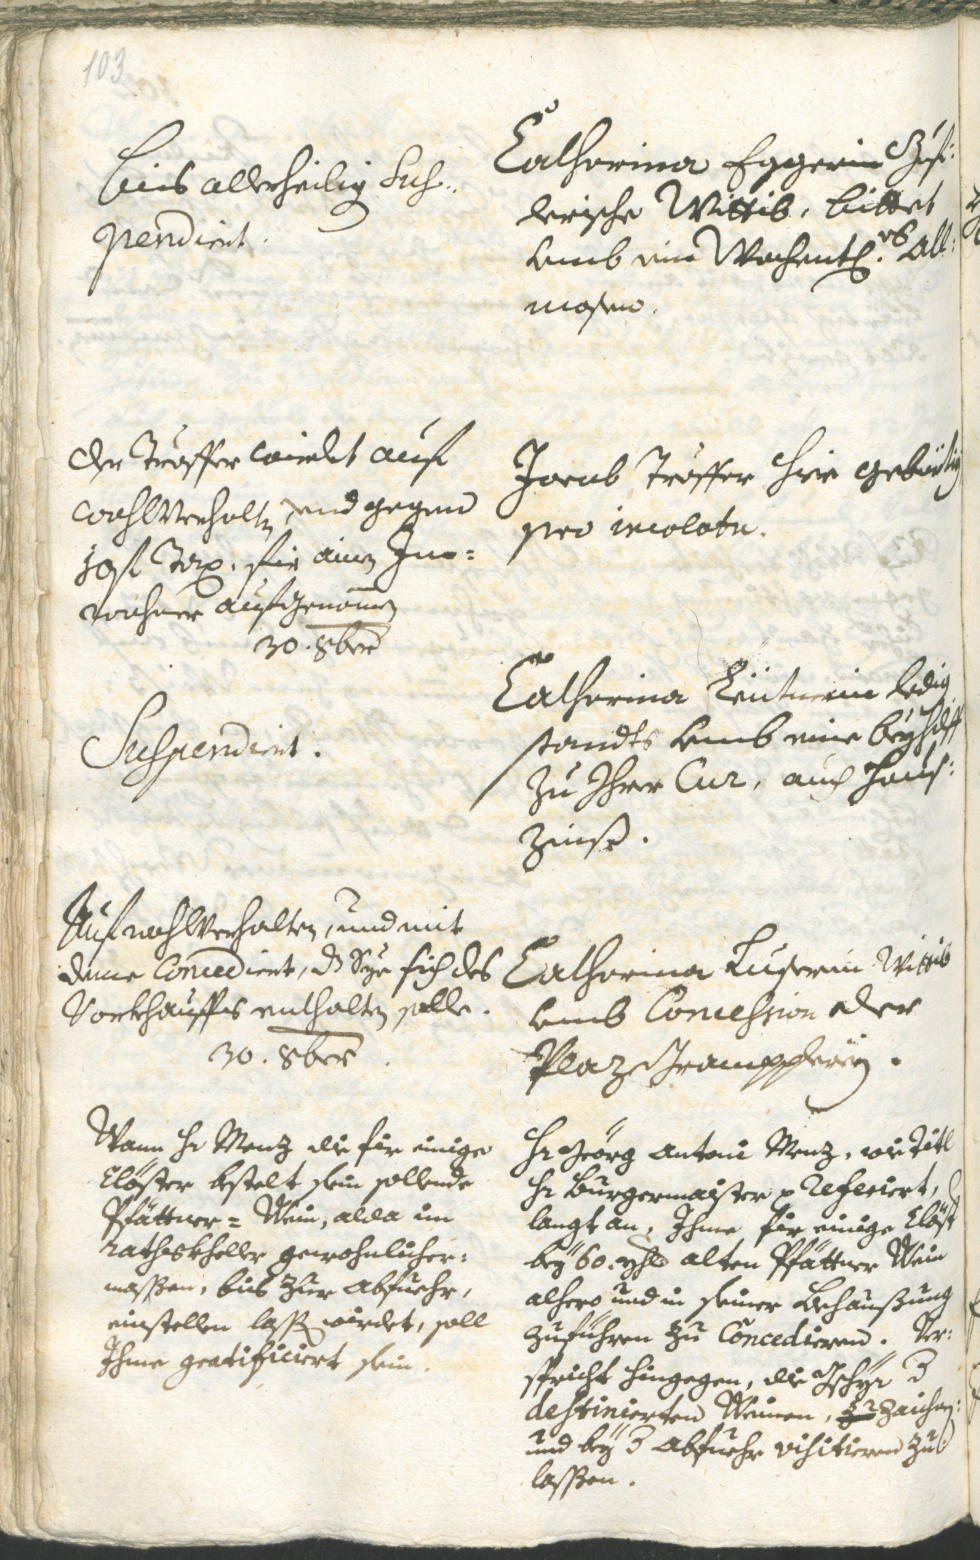 103
Bis allerheilig Sus-
pendiert.
Catharina Eggerin
lerische Wittib, bittet
umb ein Wochentl. All-
mosen.
Der Troffer wirdet auf
wohlverhalten, und gegen
Tax. für ainen Inn-
wohner aufgenomen
30. 8bris
Jacob Troffer hie gebürtig
pro incolatu.
Suspendiert.
Catharina ledig
standts umb eine beyhilff
zu Ihrer Cur, auch Haus-
zinß.
Auf wohlverhalten, und mit
deme Concediert, dz Sye sich des
Vorkhauffs enthalten solle.
30. 8bris
Catharina Luggerin Wittib
umb Concession der
Plaz
Wann Hr Menz die für einige
Clöster bestelt sein sollende
Pfättner-Wein, alda im
rathskheller gewohnlicher-
massen, bis zur abfuehr,
einstellen lasst wirdet, soll
Ihme gratificiert sein.
Hr Georg Antoni Menz, wie Titl
Hr Burgermaister Referiert,
langt an, Ihme für einige Clöst
bey 60. yhl alten Pfättner Wein
alhero und in seiner Behaußung
zuführen zu Concedieren. Ver-
spricht hingegen, die
destinierten Weinen, zaichn-
und bey abfuehr visitieren zu
lassen.